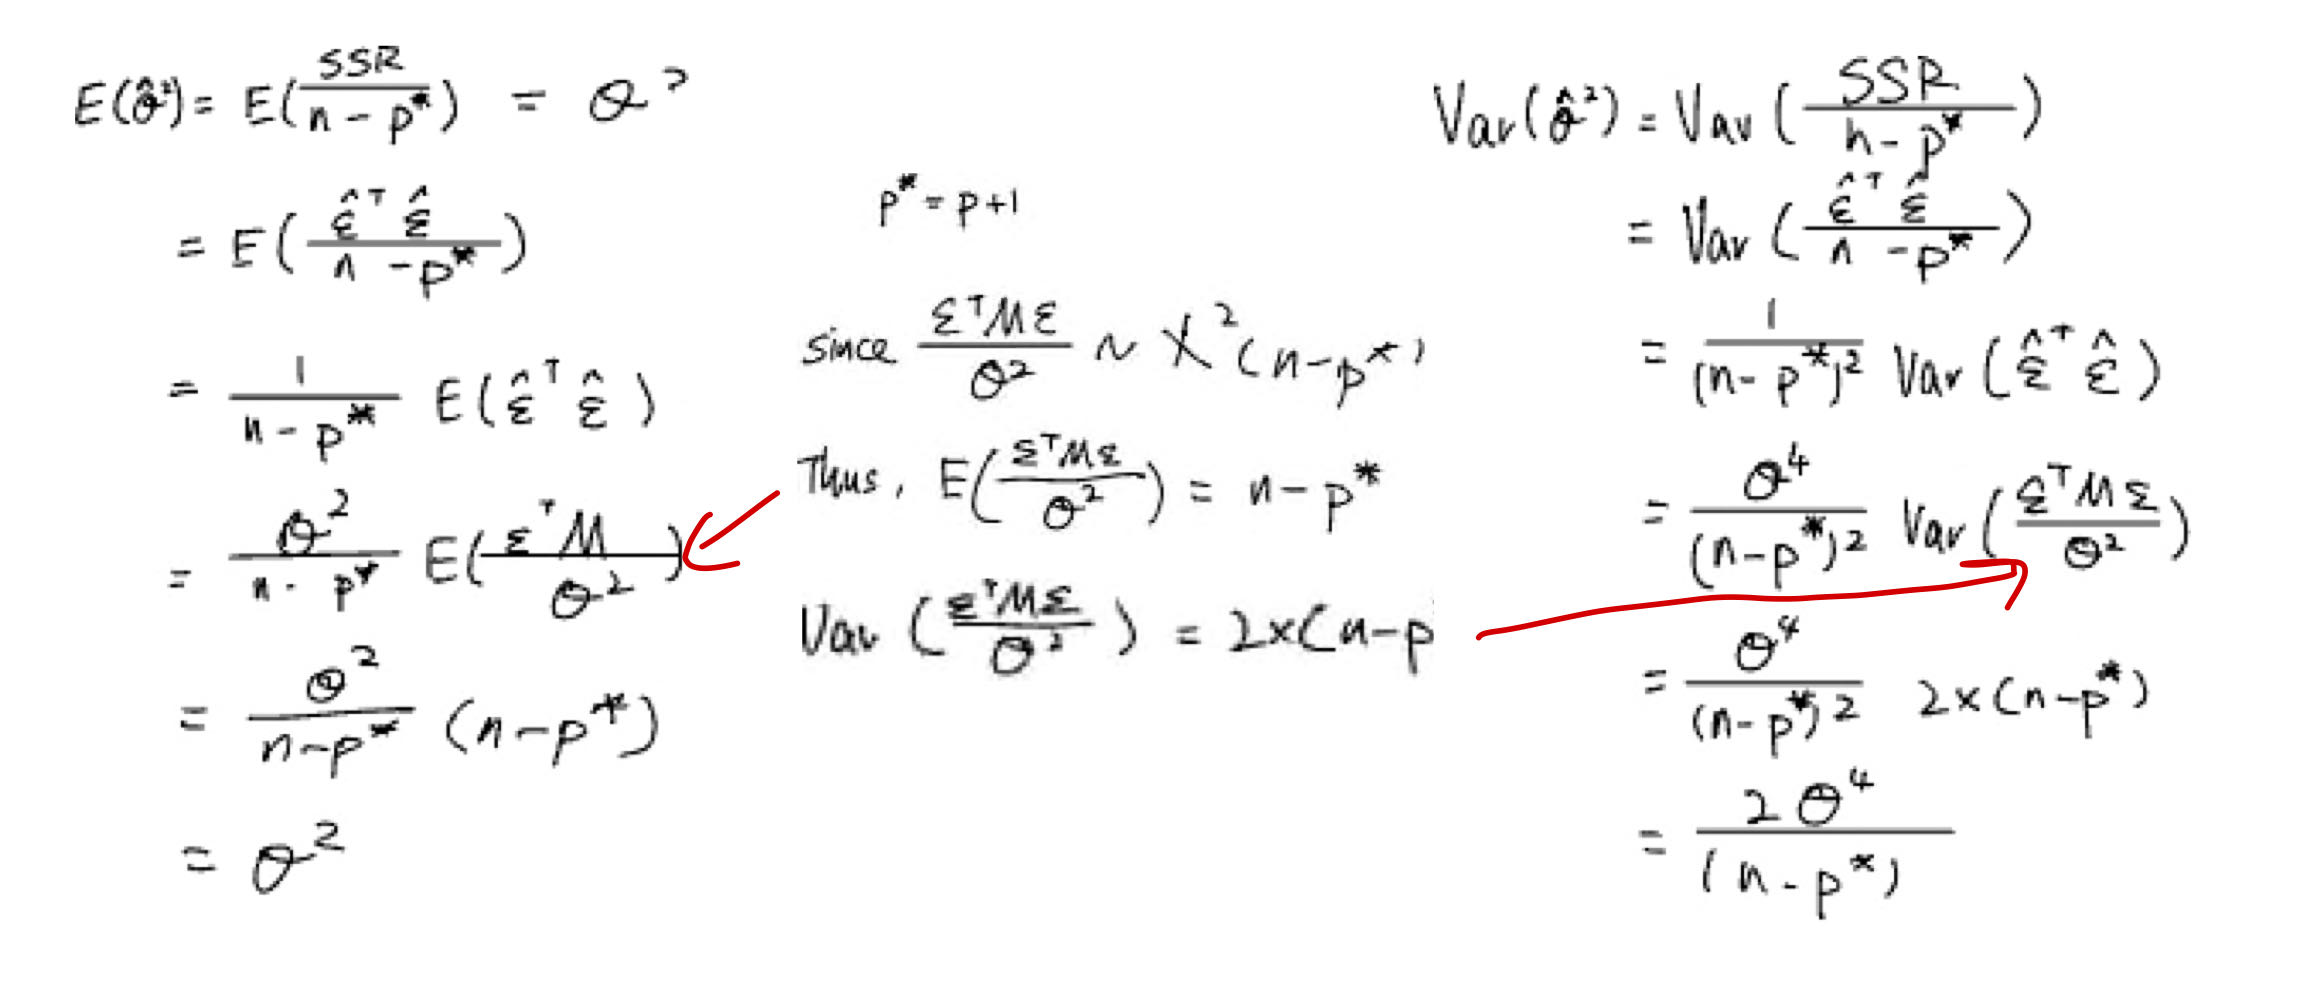 E(σ̂²) = E(SSR / (n - p*)) = σ²
= E(ε̂ᵀ ε̂ / (n - p*))
= 1 / (n - p*) E(ε̂ᵀ ε̂)
= σ² / (n - p*) E(εᵀM / σ²)
= σ² / (n - p*) (n - p*)
= σ²
p* = p+1
since εᵀMε / σ² ~ X²(n - p*)
Thus, E(εᵀMε / σ²) = n - p*
Var(εᵀMε / σ²) = 2×(n-p
Var(σ̂²) = Var(SSR / (n - p*))
= Var(ε̂ᵀ ε̂ / (n - p*))
= 1 / (n - p*)² Var(ε̂ᵀ ε̂)
= σ⁴ / (n - p*)² Var(εᵀMε / σ²)
= σ⁴ / (n - p*)² 2×(n - p*)
= 2σ⁴ / (n - p*)